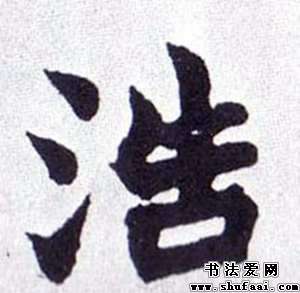 浩
书法爱网
www.shufaai.com